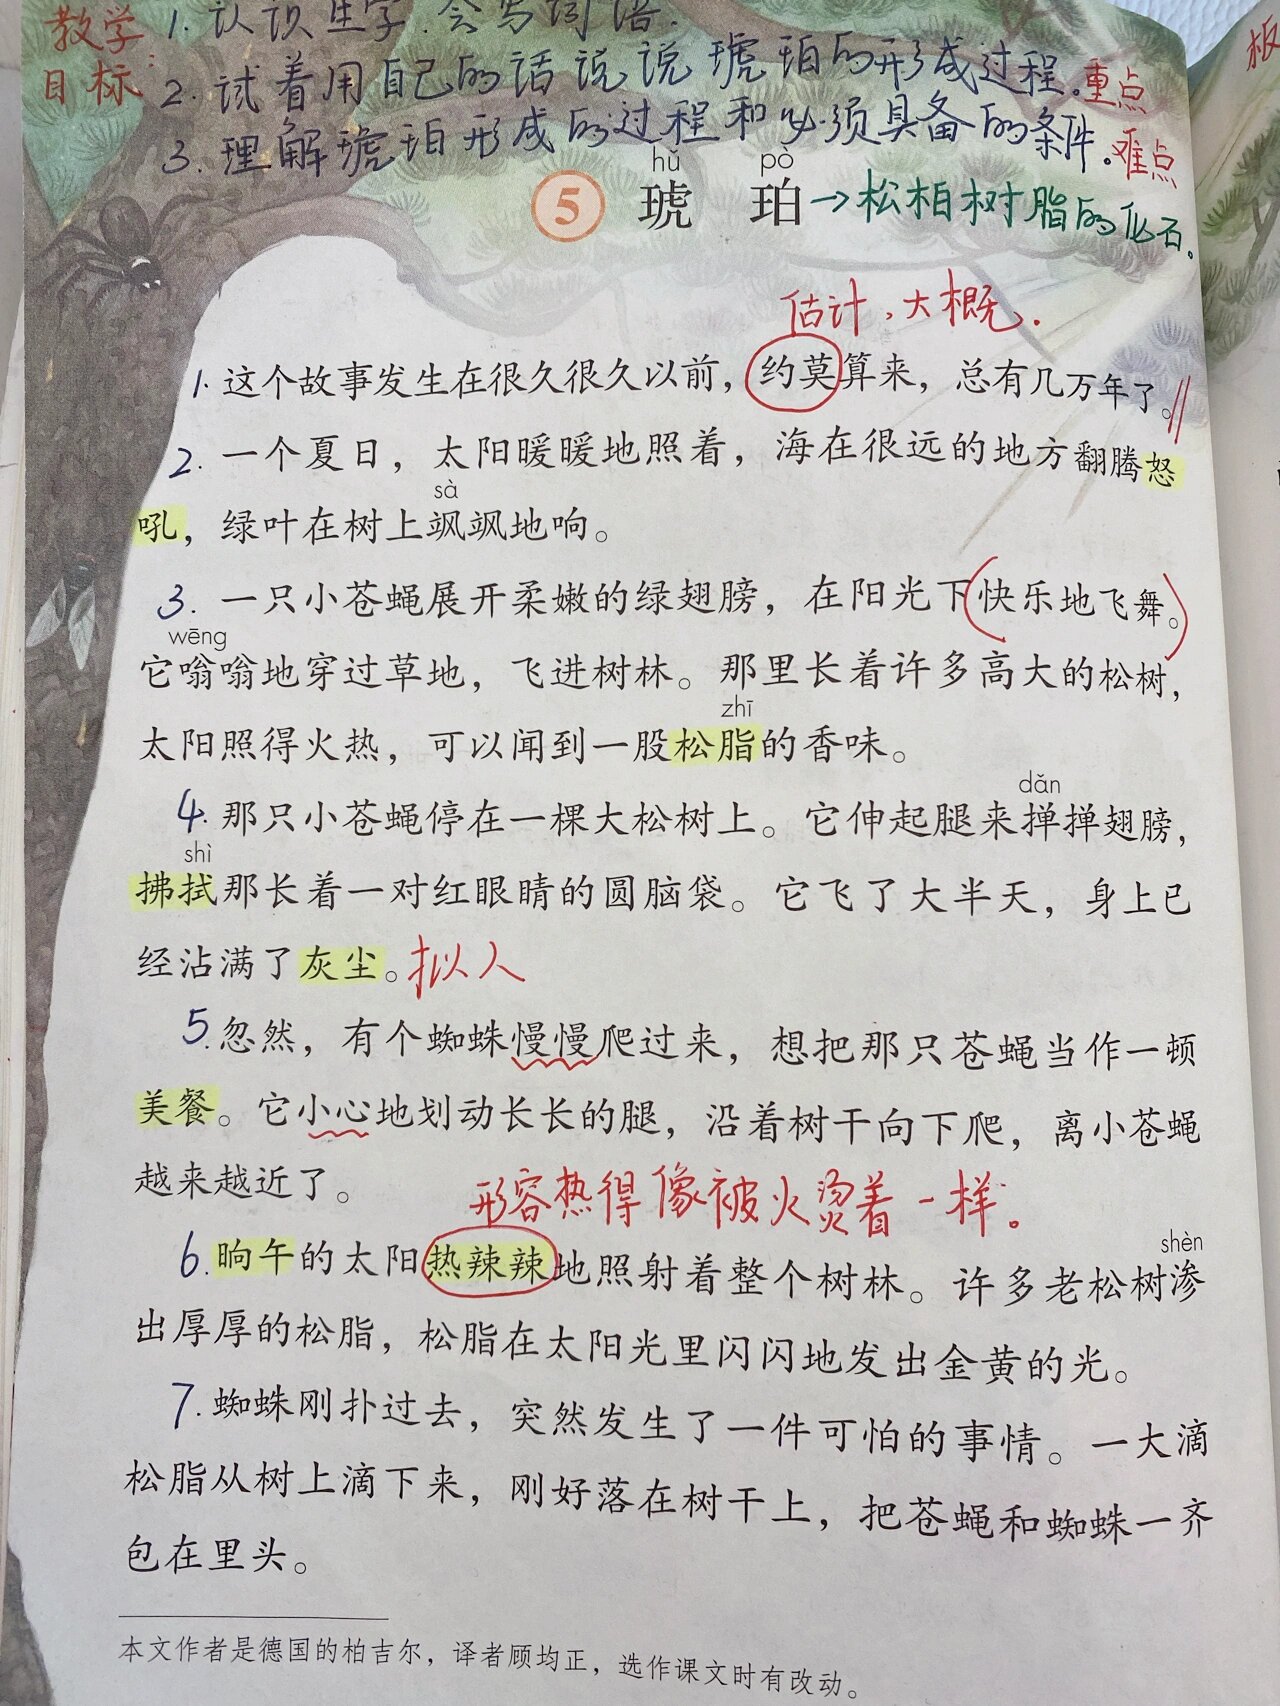 教学 1. 认识生字.会写词语.
目标: 2. 试着用自己的话说说琥珀的形成过程.重点
3. 理解琥珀形成的过程和必须具备的条件。难点
hǔ pò
5 琥 珀→松柏树脂的化石。
估计,大概.
1. 这个故事发生在很久很久以前，约莫算来，总有几万年了。
2. 一个夏日，太阳暖暖地照着，海在很远的地方翻腾怒
sà
吼，绿叶在树上飒飒地响。
3. 一只小苍蝇展开柔嫩的绿翅膀，在阳光下(快乐地飞舞。)
wēng
它嗡嗡地穿过草地，飞进树林。那里长着许多高大的松树，
zhī
太阳照得火热，可以闻到一股松脂的香味。
dǎn
4. 那只小苍蝇停在一棵大松树上。它伸起腿来掸掸翅膀，
shì
拂拭那长着一对红眼睛的圆脑袋。它飞了大半天，身上已
经沾满了灰尘。拟人
5. 忽然，有个蜘蛛慢慢爬过来，想把那只苍蝇当作一顿
美餐。它小心地划动长长的腿，沿着树干向下爬，离小苍蝇
越来越近了。
形容热得像被火烫着一样。
shèn
6. 晌午的太阳热辣辣地照射着整个树林。许多老松树渗
出厚厚的松脂，松脂在太阳光里闪闪地发出金黄的光。
7. 蜘蛛刚扑过去，突然发生了一件可怕的事情。一大滴
松脂从树上滴下来，刚好落在树干上，把苍蝇和蜘蛛一齐
包在里头。
本文作者是德国的柏吉尔，译者顾均正，选作课文时有改动。
板